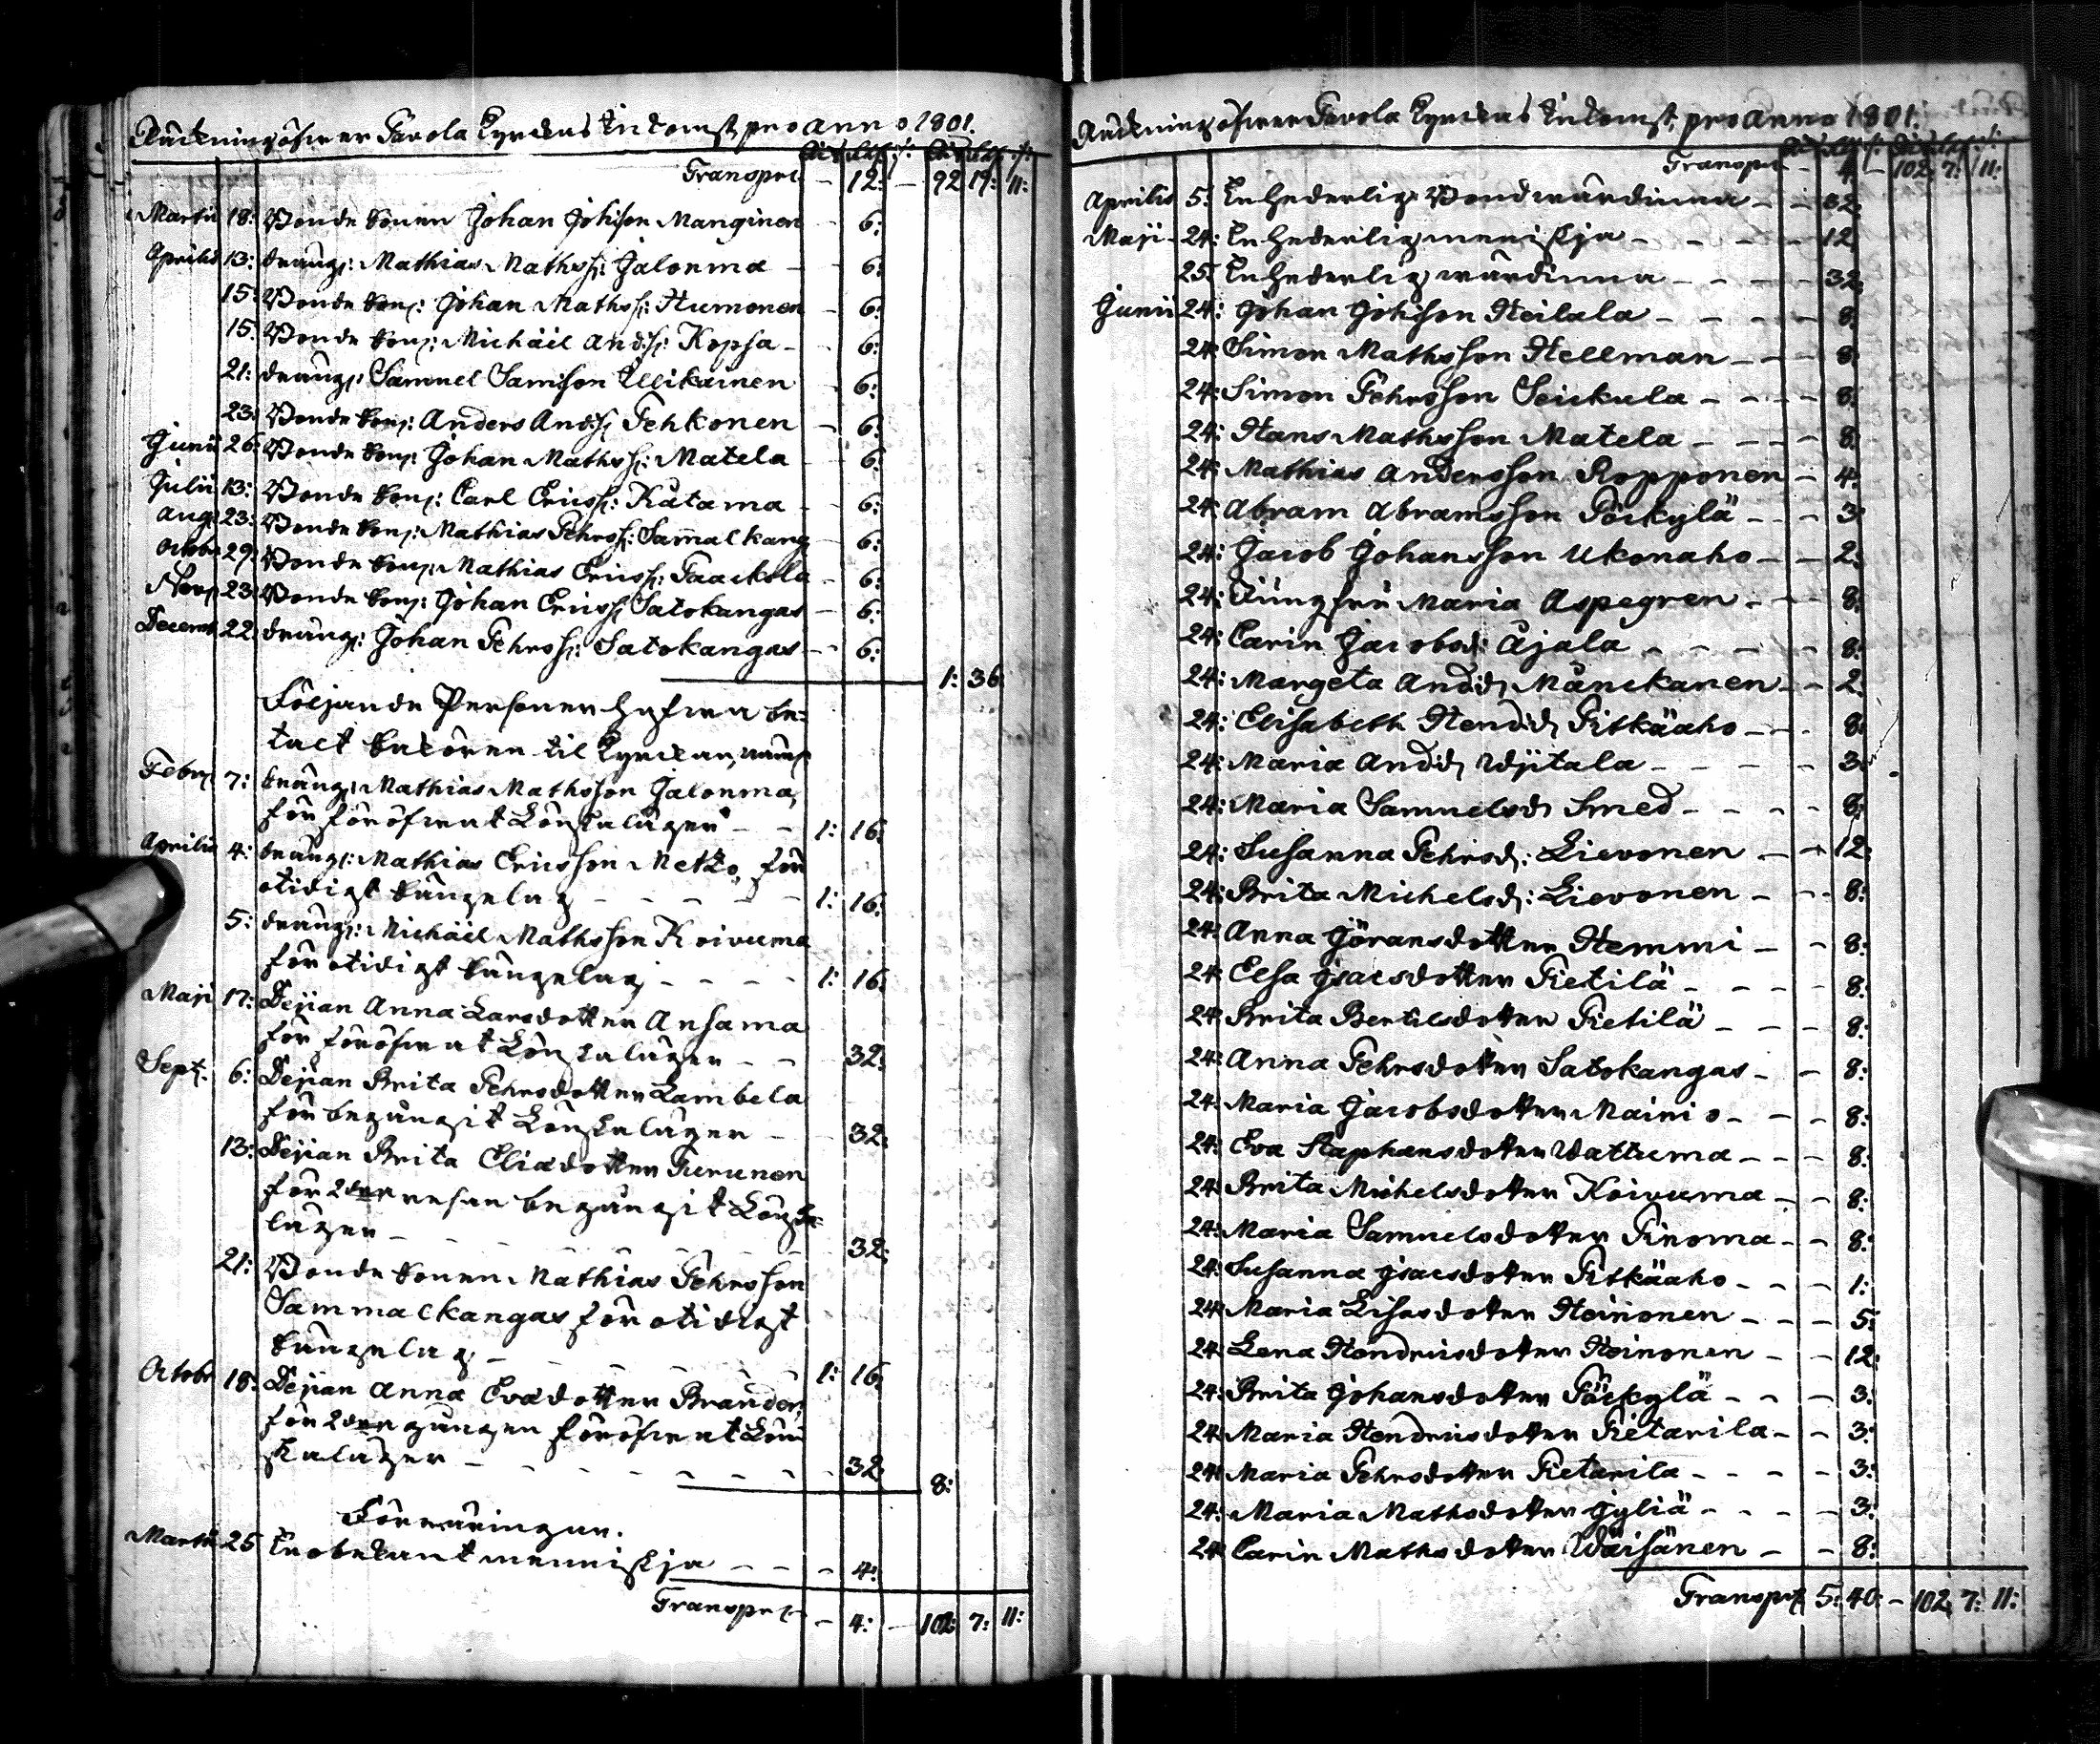 Räckning öfwer Pavola Kyrckas Inkomst pro anno 1801.
Rd Sk: /: Rd Sk: /:
Transpt. - 12: - 92 19: 11:
Martii 18: Bonde sonen Johan Johsson Manginen - 6:
Aprilis 13: dräng: Mathias Mathss: Jalonma - 6:
15: Bonde son: Johan Mathss: Humonen - 6:
15: Bonde son: Michäel Andss: Kopsa - 6:
21: dräng: Samuel Samsson Ullikainen - 6:
23: Bonde son: Anders Andss: Tehkonen - 6:
Junii 26: Bonde son: Johan Mathss: Matela - 6:
Julii 13: Bonde son: Carl Ericss: Kätama - 6:
Aug: 23: Bonde son: Mathias Pehrss: Sam̄alkang - 6:
Octobr 29: Bonde son: Mathias Ericss: Paackola - 6:
Nov: 23: Bonde son: Johan Ericss: Satokangas - 6:
Decemb 22: dräng: Johan Pehrss: Satokangas - 6:
1: 36:
Följande Personer hafwa be-
talt böter til Kyrckan, näml
Febr: 7: dräng: Mathias Mathsson Jalonma,
för föröfwat Lönskaläger - - 1: 16:
Aprilis 4: dräng: Mathias Ericsson Metzo, för
otidigt sängelag - - - - - 1: 16:
5: dräng: Michäel Mathsson Koivuma
för otidigt sängelag - - - - 1: 16:
Maji 17: Pejian Anna Larsdotter Ansama
för föröfwat Lönskaläger - - 32:
Sept: 6: Pejian Brita Pehrsdotter Lambela
för begångit Lönskaläger - - 32:
13: Pejian Brita Eliädotter Turunen
för 2dra resan begångit Lönska-
läger - - - - - - - - 32:
21: Bonde sonen Mathias Pehrsson
Sammalkangas för otidigt
sängelag - - - - - 1: 16:
Octobr 18: Pejian Anna Evadotter Brander
för 2dra gången föröfwat Lön
skaläger - - - - - - - - 32:
8:
Förräringar.
Martii 25 En obekant menniskja - - - 4:
Transprt - 4: - 102: 7: 11:
Räckning öfwer Pavola Kyrckas Inkomst, pro Anno 1801.
Rd Sk: /: Rd Sk: /:
Transpt - - 4: - 102: 7: 11:
Aprilis 5: En hederlig Bond wärdinna - - 32:
Maji - 24: En hederlig meniskja - - - - 12
25: En hederlig wärdinna - - - - 32:
Junii 24: Johan Johsson Heilala - - - - 8:
24: Simon Mathsson Hellman - - - 8:
24: Simon Pehrsson Seickula - - - - 8:
24: Hans Mathsson Matela - - - - 8:
24: Mathias Andersson Ropponen - 4:
24: Abram Abramsson Pöckylä - - - 3:
24: Jacob Johansson Ukonaho - - 2:
24: Jungfru Maria Aspegren - - - 8:
24: Carin Jacobsd: Äjala - - - - - 8:
24: Margeta Andd: Mänckanen - - 2:
24: Elisabeth Hendd: Pitkäaho - - - 8:
24: Maria Andd: Wjitala - - - - - 3:
24: Maria Samuelsd: Smed - - - - 8:
24: Susanna Pehrsd: Lievonen - - 12:
24: Brita Michelsd: Lievonen - - - 8:
24: Anna Göransdotter Hemmi - - 8:
24: Elsa Jsacsdotter Pietilä - - - - 8:
24: Brita Bertilsdotter Pietilä - - - 8:
24: Anna Pehrsdotter Satokangas - - 8:
24: Maria Jacobsdotter Mainio - - - 8:
24: Eva Staphansdotter Wattuma - - - 8:
24: Brita Michelsdotter Koivuma - - 8:
24: Maria Samuelsdotter Tinoma - - 8:
24: Susanna Jsacsdotter Pitkäaho - - - 1:
24: Maria Lisasdotter Heinonen - - - 5:
24: Lena Hendricsdotter Heinonen - - 12:
24: Brita Johansdotter Pöckylä - - - 3:
24: Maria Hendricsdotter Pietarila - - 3:
24: Maria Pehrsdotter Pietarila - - - - 3:
24: Maria Mathsdotter Jyliä - - - - 3:
24: Carin Mathsdotter Wäisänen - - 8:
Transprt 5: 40: - 102: 7: 11: